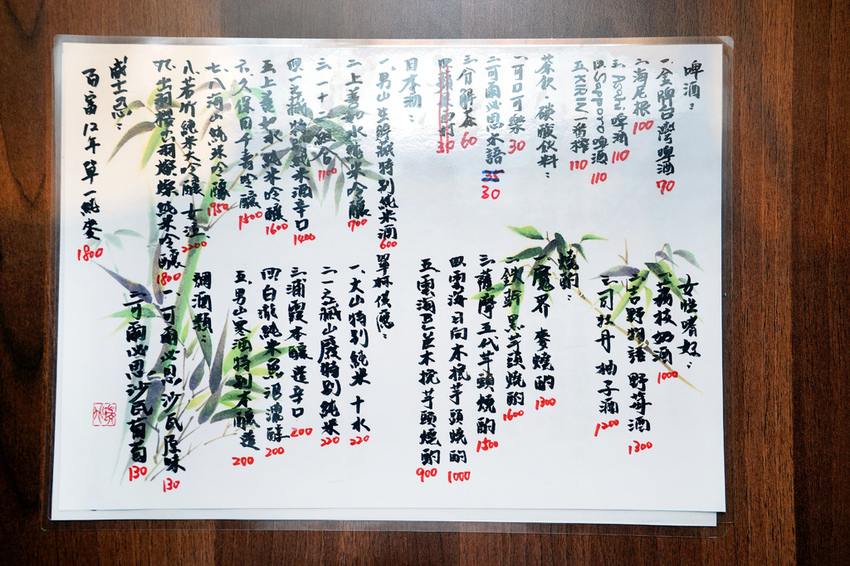 啤酒：
一、金牌台灣啤酒 70
二、海尼根 100
三、Asahi 啤酒 110
四、Sapporo 啤酒 110
五、KIRIN 一番榨 110
茶飲、碳酸飲料：
一、可口可樂 30
二、可爾必思 30
三、分解茶 60
30
日本酒：
一、男山生酛 特別純米酒 600 單杯供應：
二、上善如水純米吟釀 700
三、一十 1100
四、一之藏特別純米酒辛口 1400
五、上善如水純米吟釀 1600
六、久保田千壽吟釀 1500
七、八海山純米吟釀 1950
八、若竹純米大吟釀 女泣 2200
九、出羽櫻 出羽燦燦純米吟釀 1800
威士忌：
百富12年單一純麥 1800
女性嗜好：
一、荔枝奶酒 1000
二、吉野物語 野莓酒 1300
三、司牡丹 柚子酒 1200
燒酎：
一、魔界 麥燒酎 1300
二、鐵幹黑芋頭燒酎 1600
三、薩摩五代芋頭燒酎 1500
四、雲海日向木挽芋頭燒酎 1000
五、雲海 木挽芋頭燒酎 900
一、大山特別純米 十水 220
二、一之藏山廢特別純米 220
三、浦霞本釀造辛口 200
四、白瀧純米魚沼濃醇 200
五、男山寒酒特別本釀造 200
調酒類：
一、可爾必思沙瓦原味 130
二、可爾必思沙瓦葡萄 130